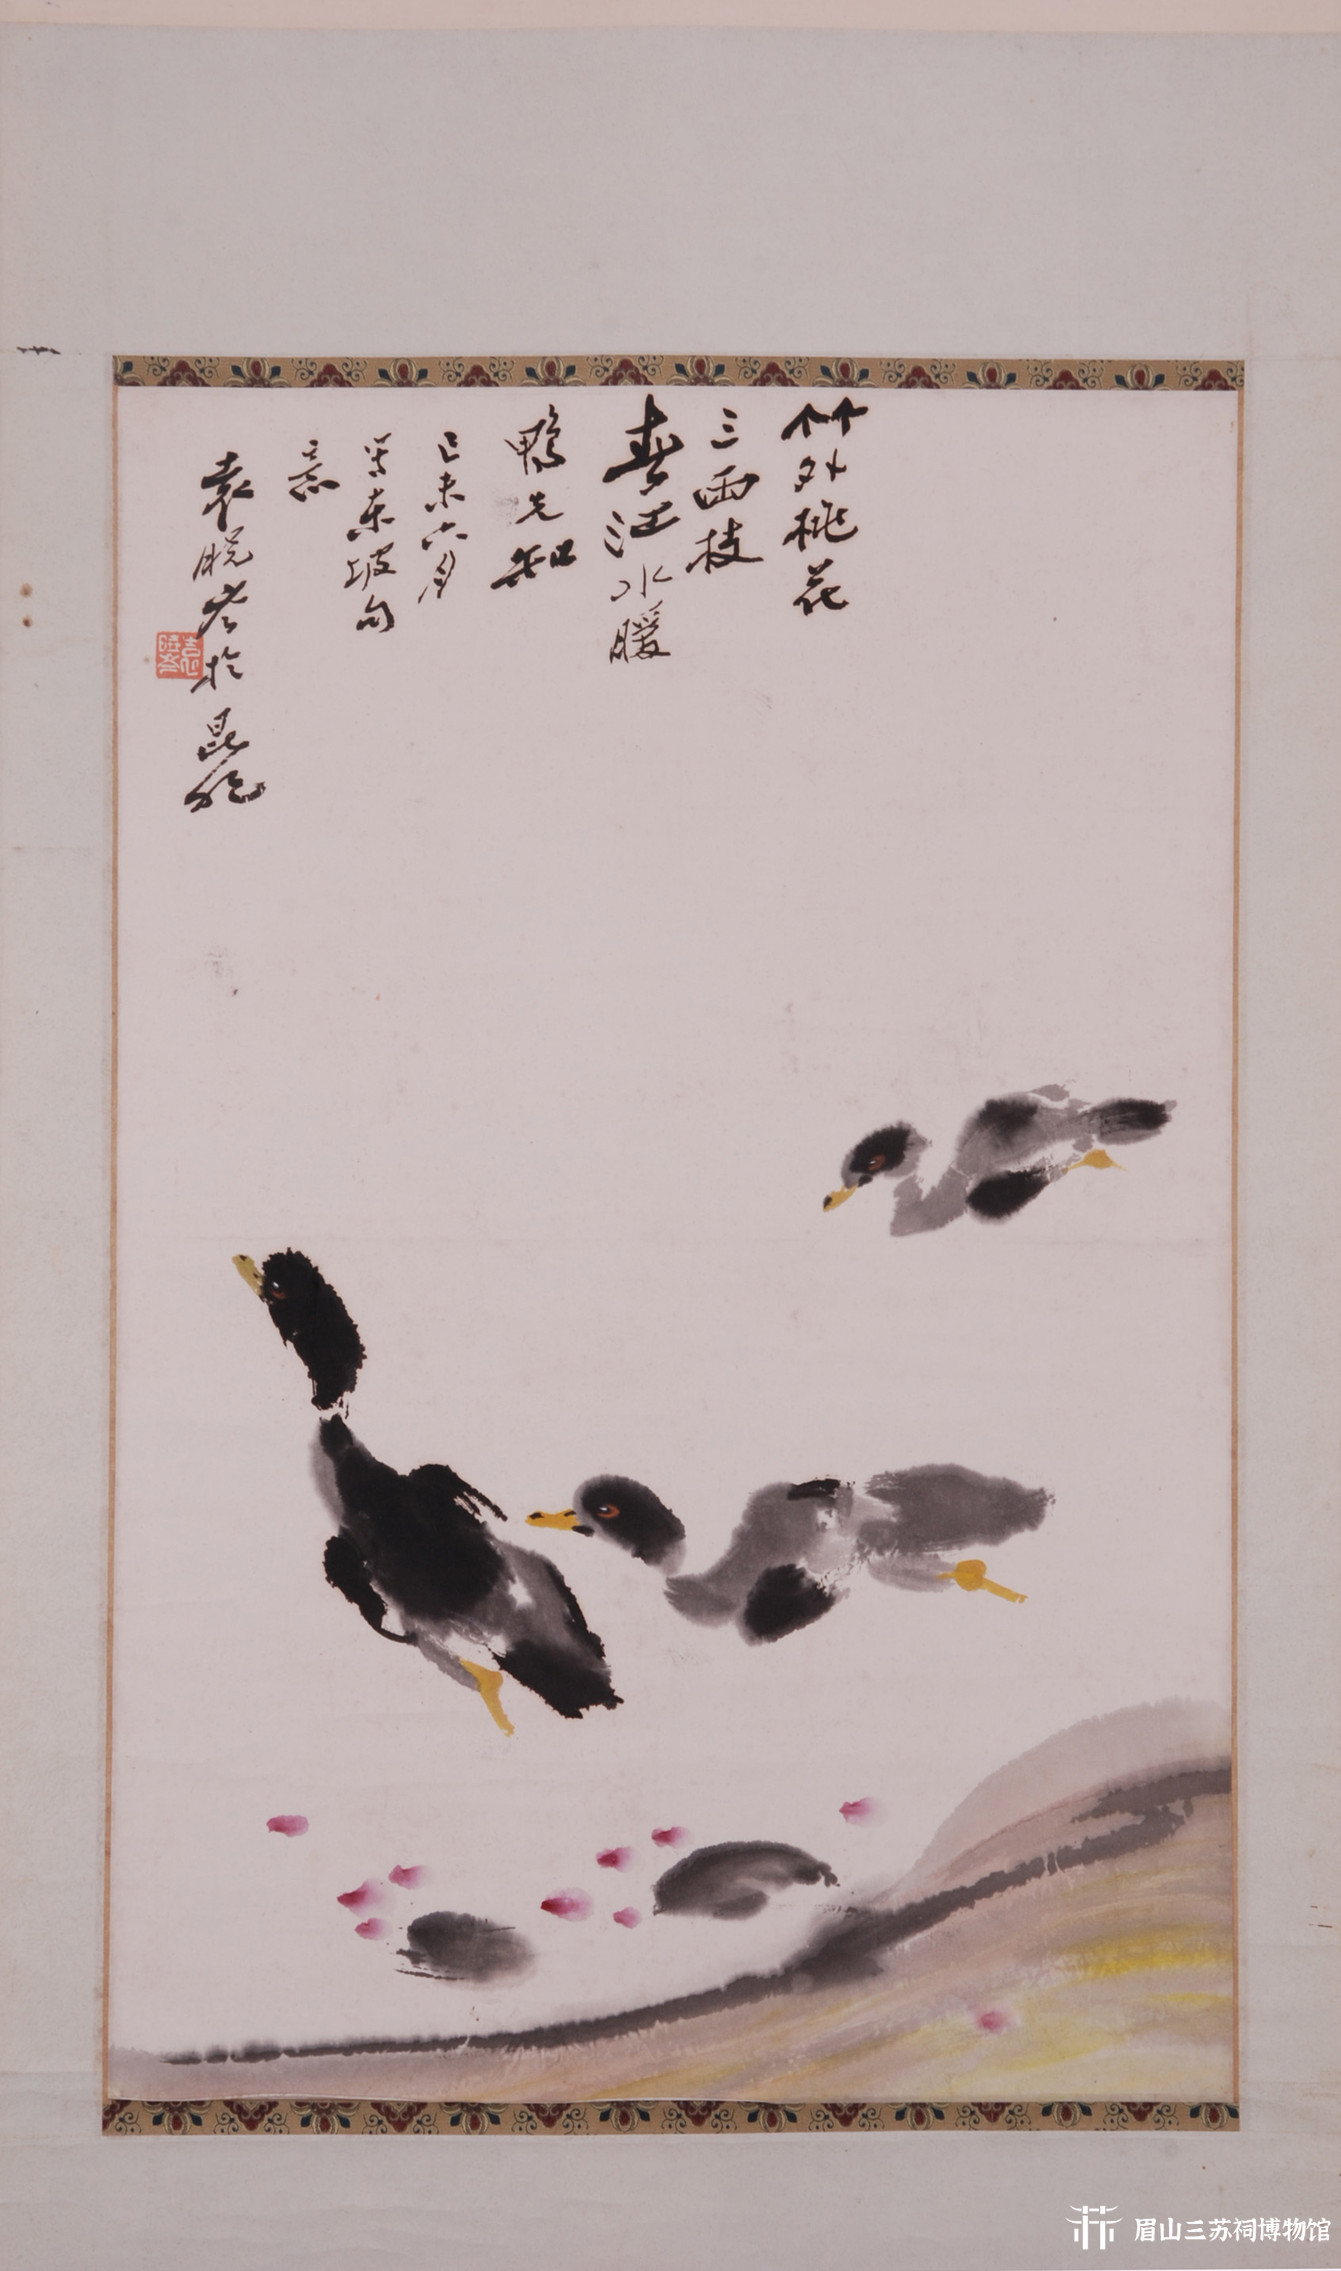 竹外桃花
三两枝
春江水暖
鸭先知
己未六月
写东坡句
意
袁晓岑於
昆明
袁晓岑
眉山三苏祠博物馆